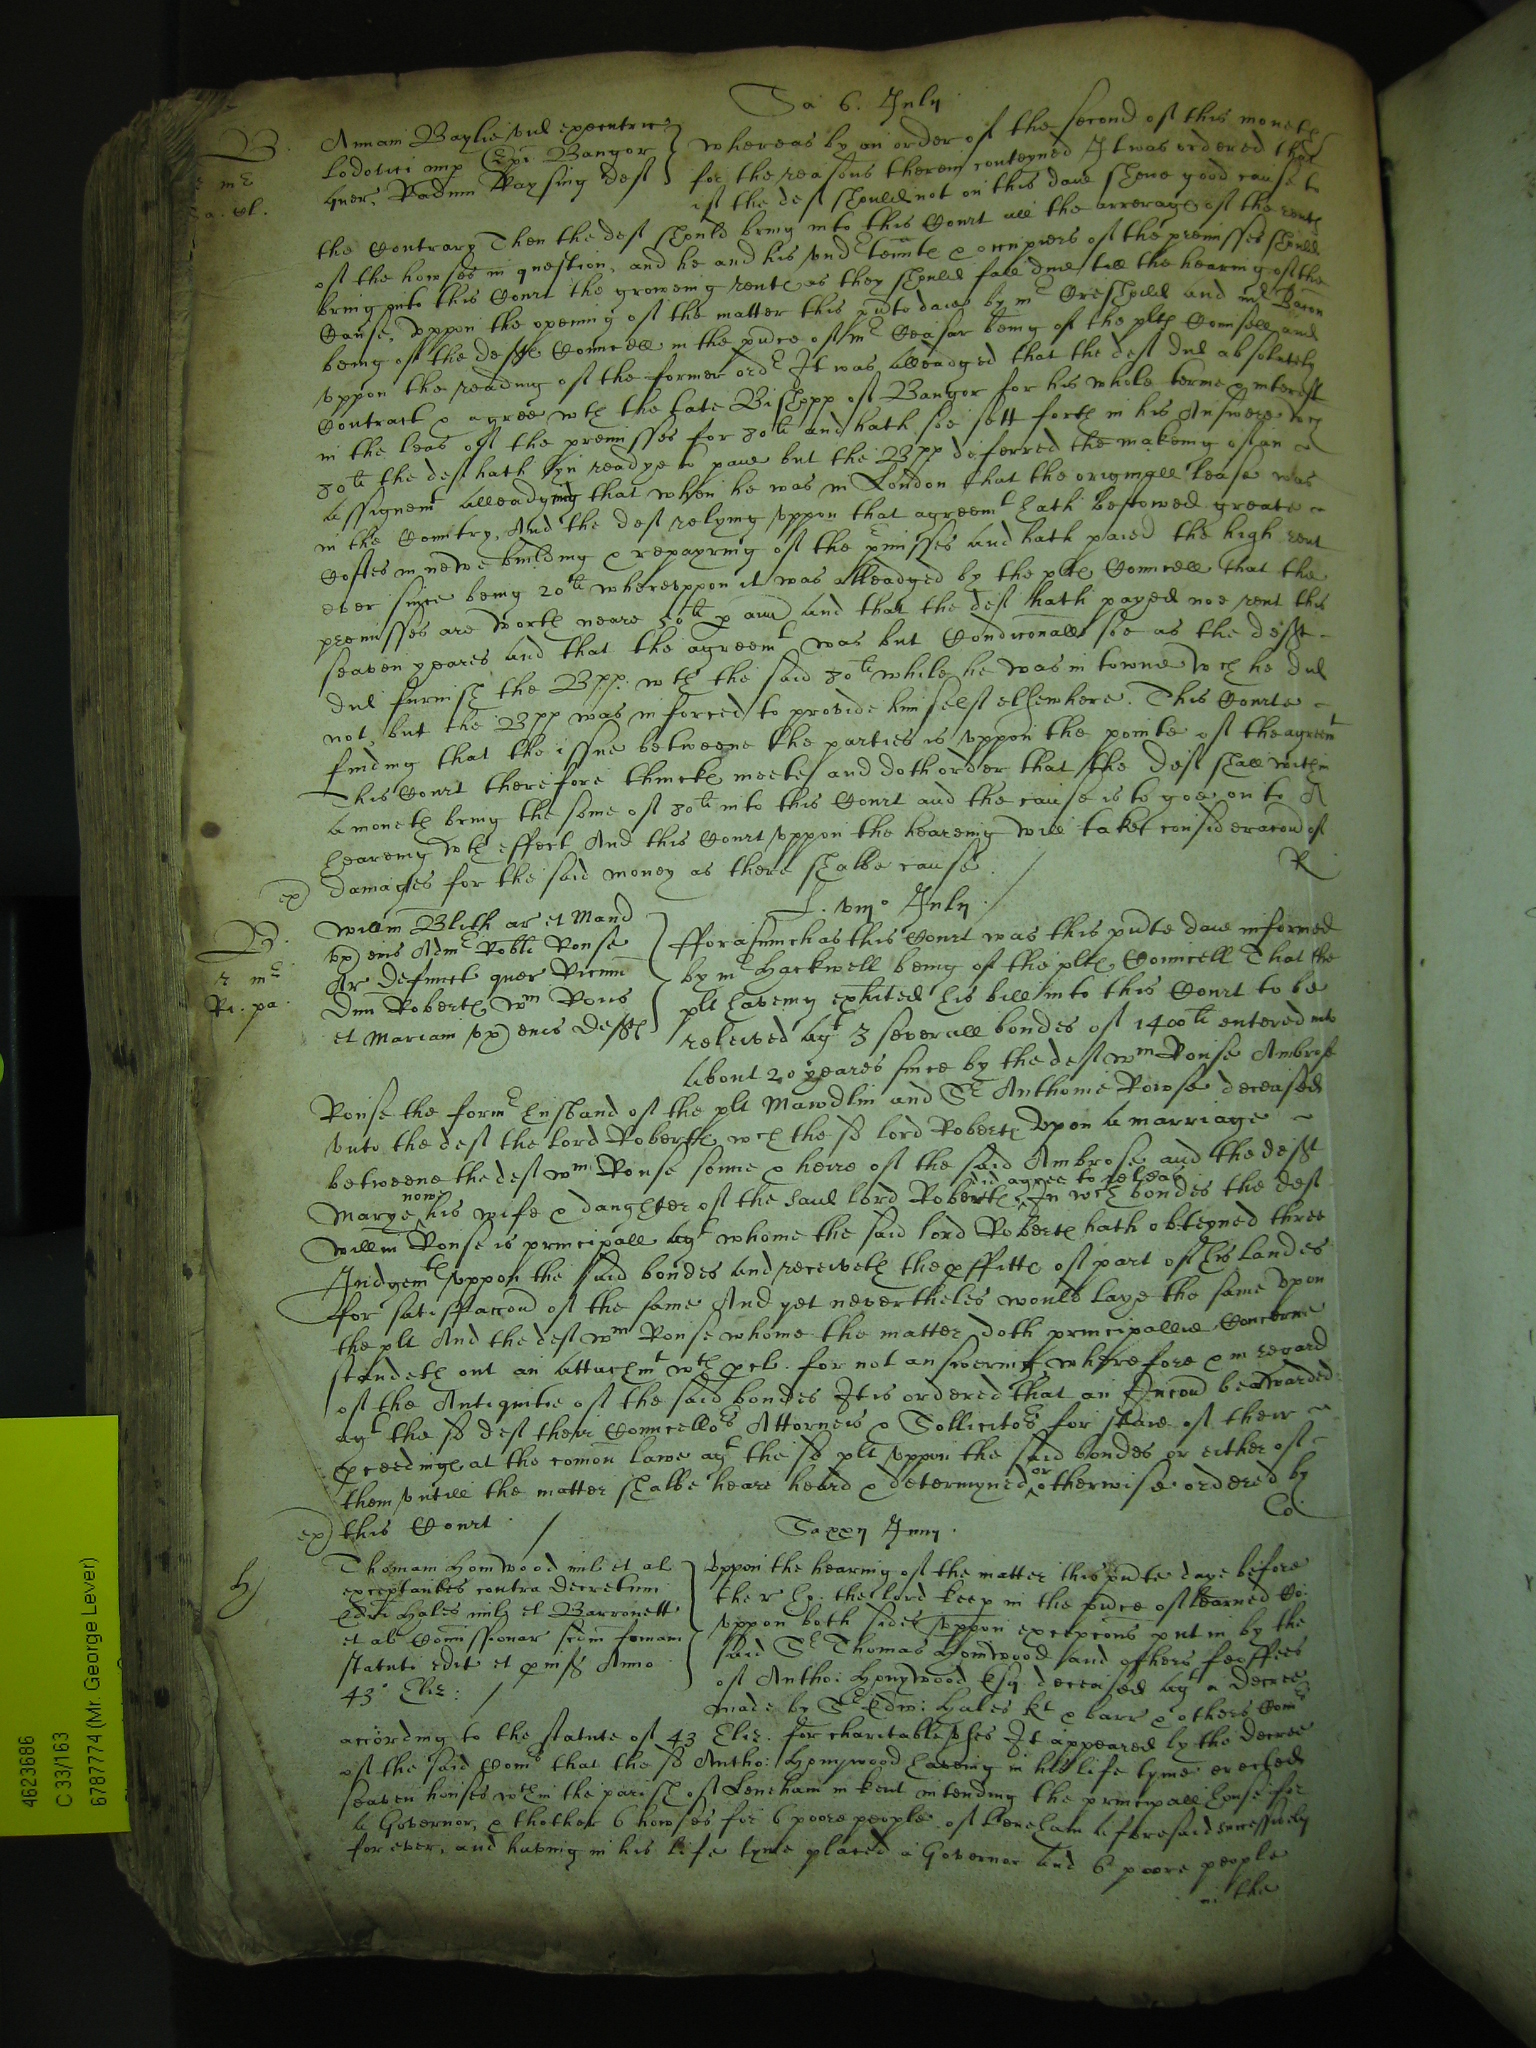 Sa 6. July
B.
Annam Baylie vid executric
Lodovici nup Epi Bangor
quer, Radum Raysing deft
whereas by an order of the second of this moneth
for the reasons therein conteyned It was ordered that
if the deft should not on this daie shewe good cause to
the Contrary Then the deft should bring into this Court all the arrerages of the rentes
of the howses in question, and he and his vnd tennts & occupiers of the premisses should
bring into this Court the groweing rentes as they should fall due till the hearing of the
Cause, Vppon the opening of the matter this pnte daie by mr Creshold and mr Bacon
being of the defts Councell in the pnce of mr Ceasar being of the plts Counsell and
vppon the reading of the former ordr It was alleadged that the deft did absolutely
Contract & agree wth the late Bishopp of Bangor for his whole terme & interest
in the leas of the premisses for 80li and hath soe sett forth in his Answere wch
80li the deft hath byn readye to paie but the Bpp deferred the makeing of an
Assignemt Alleadging that when he was in London that the originall lease was
in the Countrey, And the deft relying vppon that agreemt hath bestowed greate
Costes in newe building & repayring of the pmisses And hath paied the high rent
ever since being 20li wherevppon it was alleadged by the plts Councell that the
premisses are worth neare 50li p ann And that the deft hath payed noe rent this
seaven yeares And that the agreemt was but Condiconall soe as the deft
did furnish the Bpp. wth the said 80li while he was in towne wch he did
not, but the Bpp was inforced to provide himselfe elsewhere. This Courte
finding that the issue betweene the parties is vppon the pointe of the agreemt
This Court therefore thincks meete and doth order that the deft shall within
a moneth bring the some of 80li into this Court and the cause is to goe on to A
heareing wth effect And this Court vppon the heareing will take consideracon of
damages for the said money as there shalbe cause.
R
ex)
L. viijo July
B.
r mr
Ri. pa.
Willm Blith ar et Maud
vx eius Adm Robti Rouse
Ar defunct quer
Dnm Robertes Wm Rous
et Mariam vx eius defts
fforasmuch as this Court was this pnte daie informed
by mr Hackwell being of the plts Councell That the
plt haveing exhited his bill into this Court to be
releived agt 3 severall bondes of 1400li entered into
About 20 yeares since by the deft Wm Rouse Ambrose
Rouse the formr husband of the plt Mawdlin and Sr Anthonie Rowse deceased
vnto the deft the lord Robertes wch the sd lord Robertes vpon a marriage
betweene the deft Wm Rouse sonne & heire of the said Ambrose and the deft
Marye now his wife & daughter of the said lord Robertes did agree to releas In wch bondes the deft
Willm Rouse is principall agt whome the said lord Robertes hath obteyned three
Judgemts vppon the said bondes And receiveth the pffitts of part of his landes
for satisfaccon of the same And yet nevertheles would laye the same vpon
the plt And the deft Wm Rouse whome the matter doth principallie Concerne
standeth out an Attachmt wth pcl. for not answering wherefore & in regard
of the Antiquitie of the said bondes It is ordered that an Iniuncon be awarded
agt the sd deft their Councellors Attorneis & Sollicitors for staie of their
pceedinges at the comon lawe agt the sd plt vppon the said bondes or either of
them vntill the matter shalbe heare heard & determyned or otherwise ordered by
this Court.
Co.
ex)
Sa xxij Juny.
H
Thomam Honiwood mil et al
exceptantes contra decretum
Edri Hales milz et Barronett
et al Comissionar scdm formam
statuti edit et pmiss Anno
43o Eliz:
Vppon the hearing of the matter this pnte daye before
the r ho: the lord keep in the pnce of learned Co:
vppon both sides vppon excepcons put in by the
said Sr Thomas Honiwood and others feoffees
of Antho: Honywood Esq deceased agt a decree
made by Sr Edw: Hales kt & barr & others Comrs
according to the statute of 43 Eliz. for charitable vses It appeared by the decree
of the said Comrs that the sd Antho: Honywood haveing in his life tyme erected
seaven houses wthin the parish of Lenham in kent intending the principall house for
a Governor, & thother 6 howses for 6 poore people of Lenham aforesaid successively
for ever, and having in his life tyme placed a Governor and 6 poore people
in the
4623686
C 33/163
6787774 (Mr. George Lever)